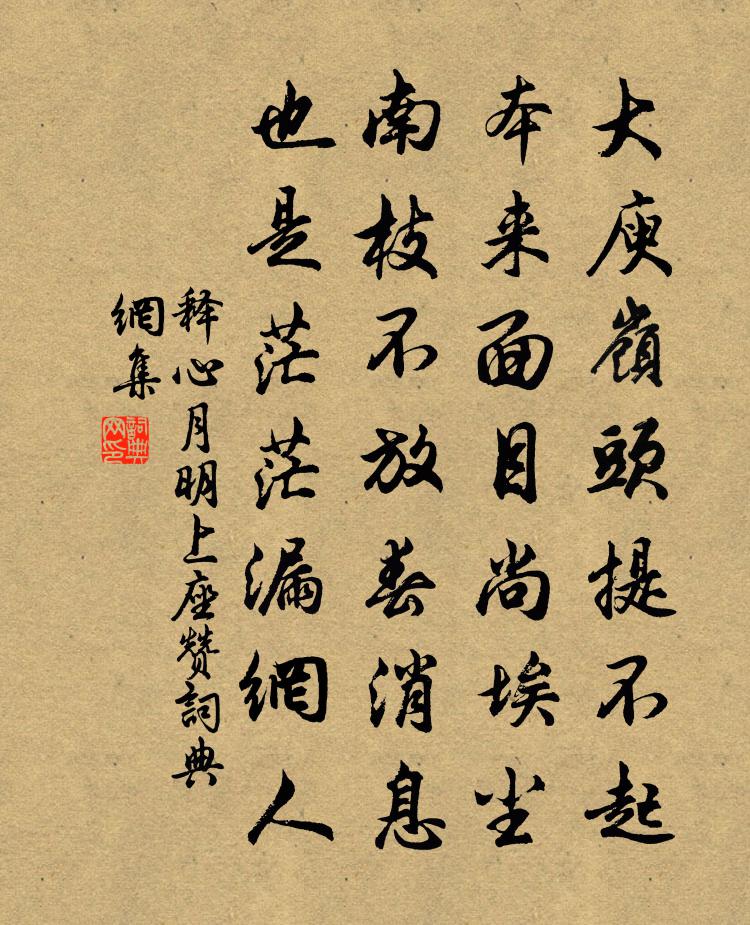 大庾嶺頭提不起
本来面目尚埃坐
南枝不放春消息
也是茫茫漏網人
释心月明上座赞詞典
網集
詞典
网印